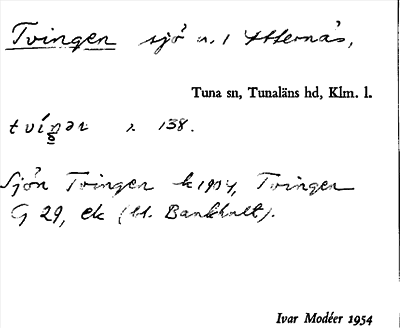 Tvingen sjö n. 1 Ytternäs,
Tuna sn, Tunaläns hd, Klm. l.
tvíŋ̥ər 138.
Sjön Tvingen k 1954, Tvingen
G 29, ek (bl. Bankhult).
Ivar Modéer 1954